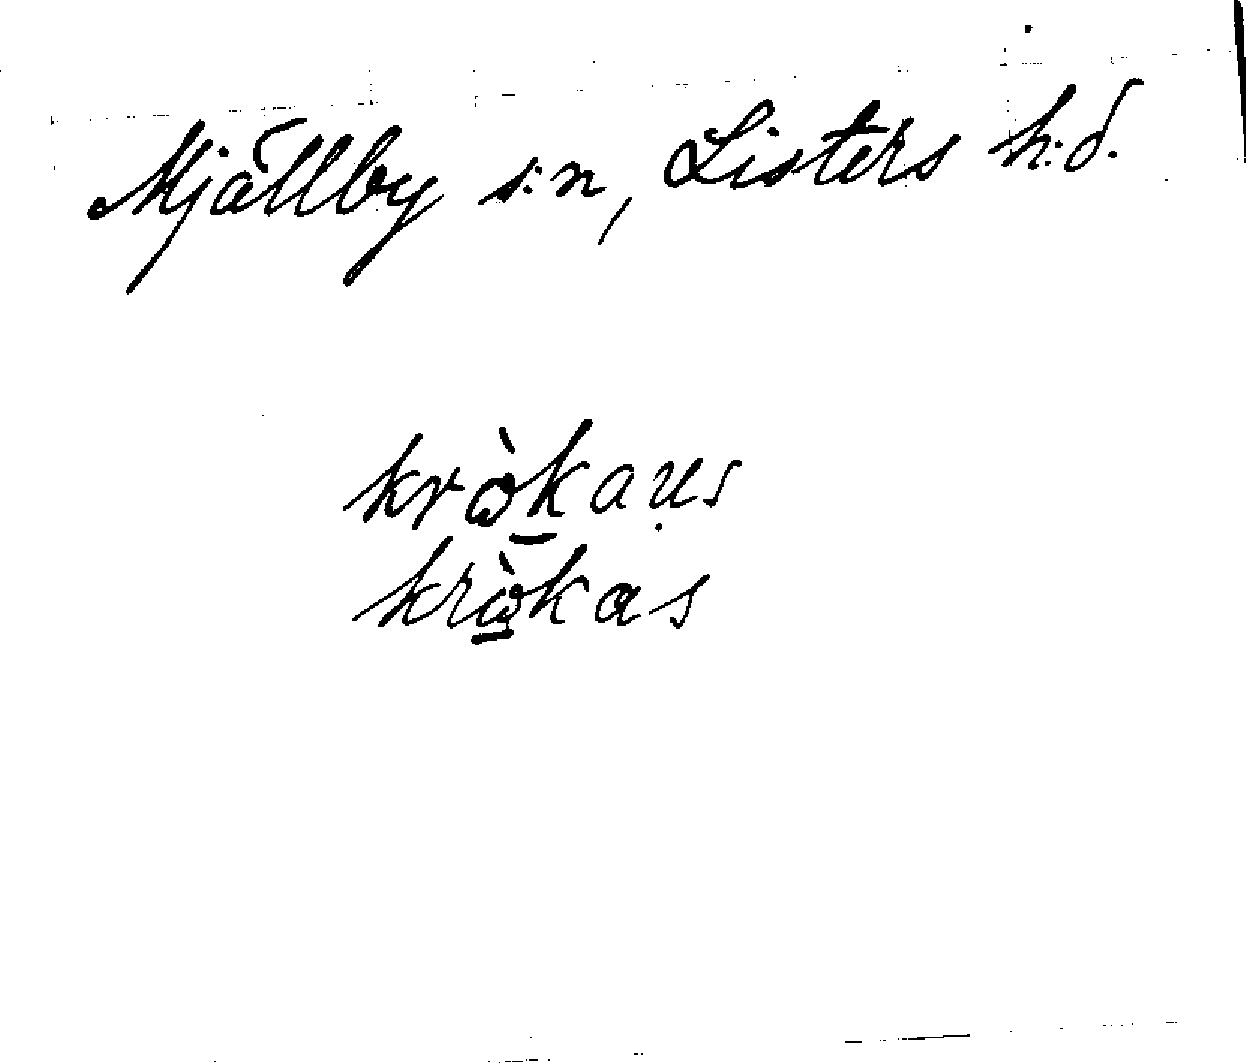 Mjällby s:n, Listers h:d.
krὼ̱kaṿs
krὼ̱kas